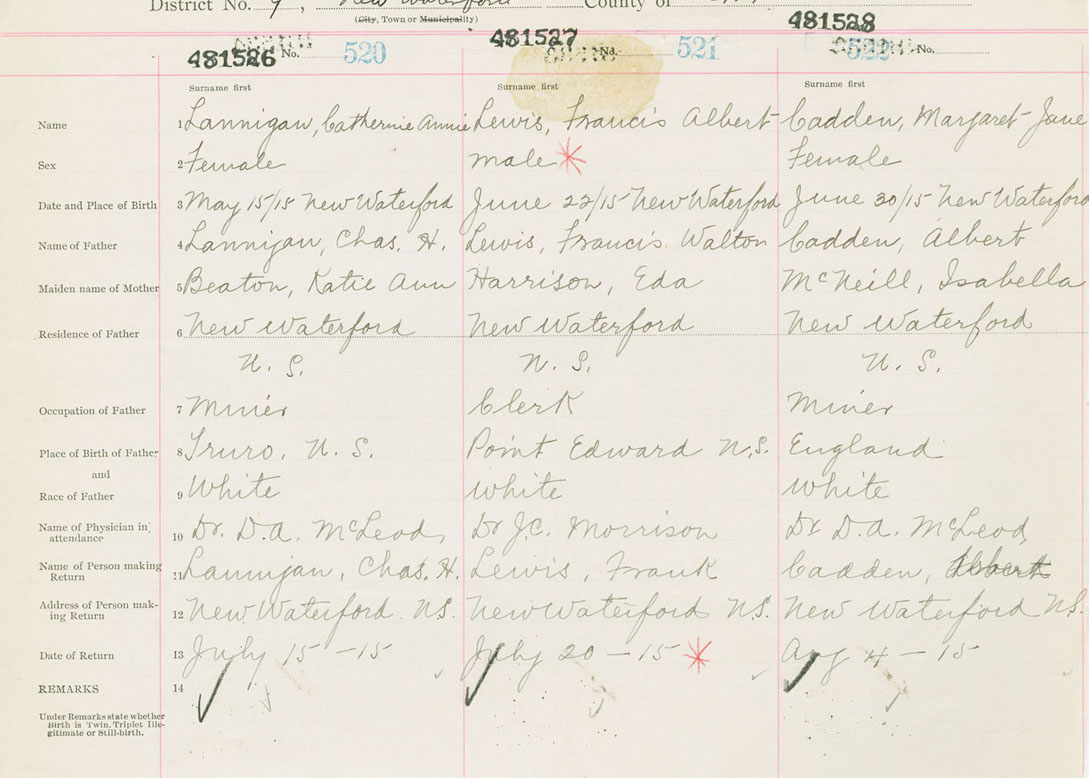 District No. 9, New Waterford County of
(City, Town or Municipality)
481526 No. 520 481527 No. 521 481528 No. 522
Surname first Surname first Surname first
Name 1 Lannigan, Catherine Annie Lewis, Francis Albert Cadden, Margaret Jane
Sex 2 Female male Female
Date and Place of Birth 3 May 15/15 New Waterford June 22/15 New Waterford June 30/15 New Waterford
Name of Father 4 Lannigan, Chas. H. Lewis, Francis Walton Cadden, Albert
Maiden name of Mother 5 Beaton, Katie Ann Harrison, Eda McNeill, Isabella
Residence of Father 6 New Waterford New Waterford New Waterford
N. S. N. S. N. S.
Occupation of Father 7 Miner Clerk Miner
Place of Birth of Father 8 Truro, N. S. Point Edward N.S. England
and
Race of Father 9 White White White
Name of Physician in attendance 10 Dr. D.A. McLeod Dr J.C. Morrison Dr D.A. McLeod
Name of Person making Return 11 Lannigan, Chas. H. Lewis, Frank Cadden, Albert
Address of Person making Return 12 New Waterford N.S. New Waterford N.S. New Waterford N.S.
Date of Return 13 July 15-15 July 20-15 Aug 4-15
REMARKS 14
Under Remarks state whether
Birth is Twin, Triplet Ille-
gitimate or Still-birth.